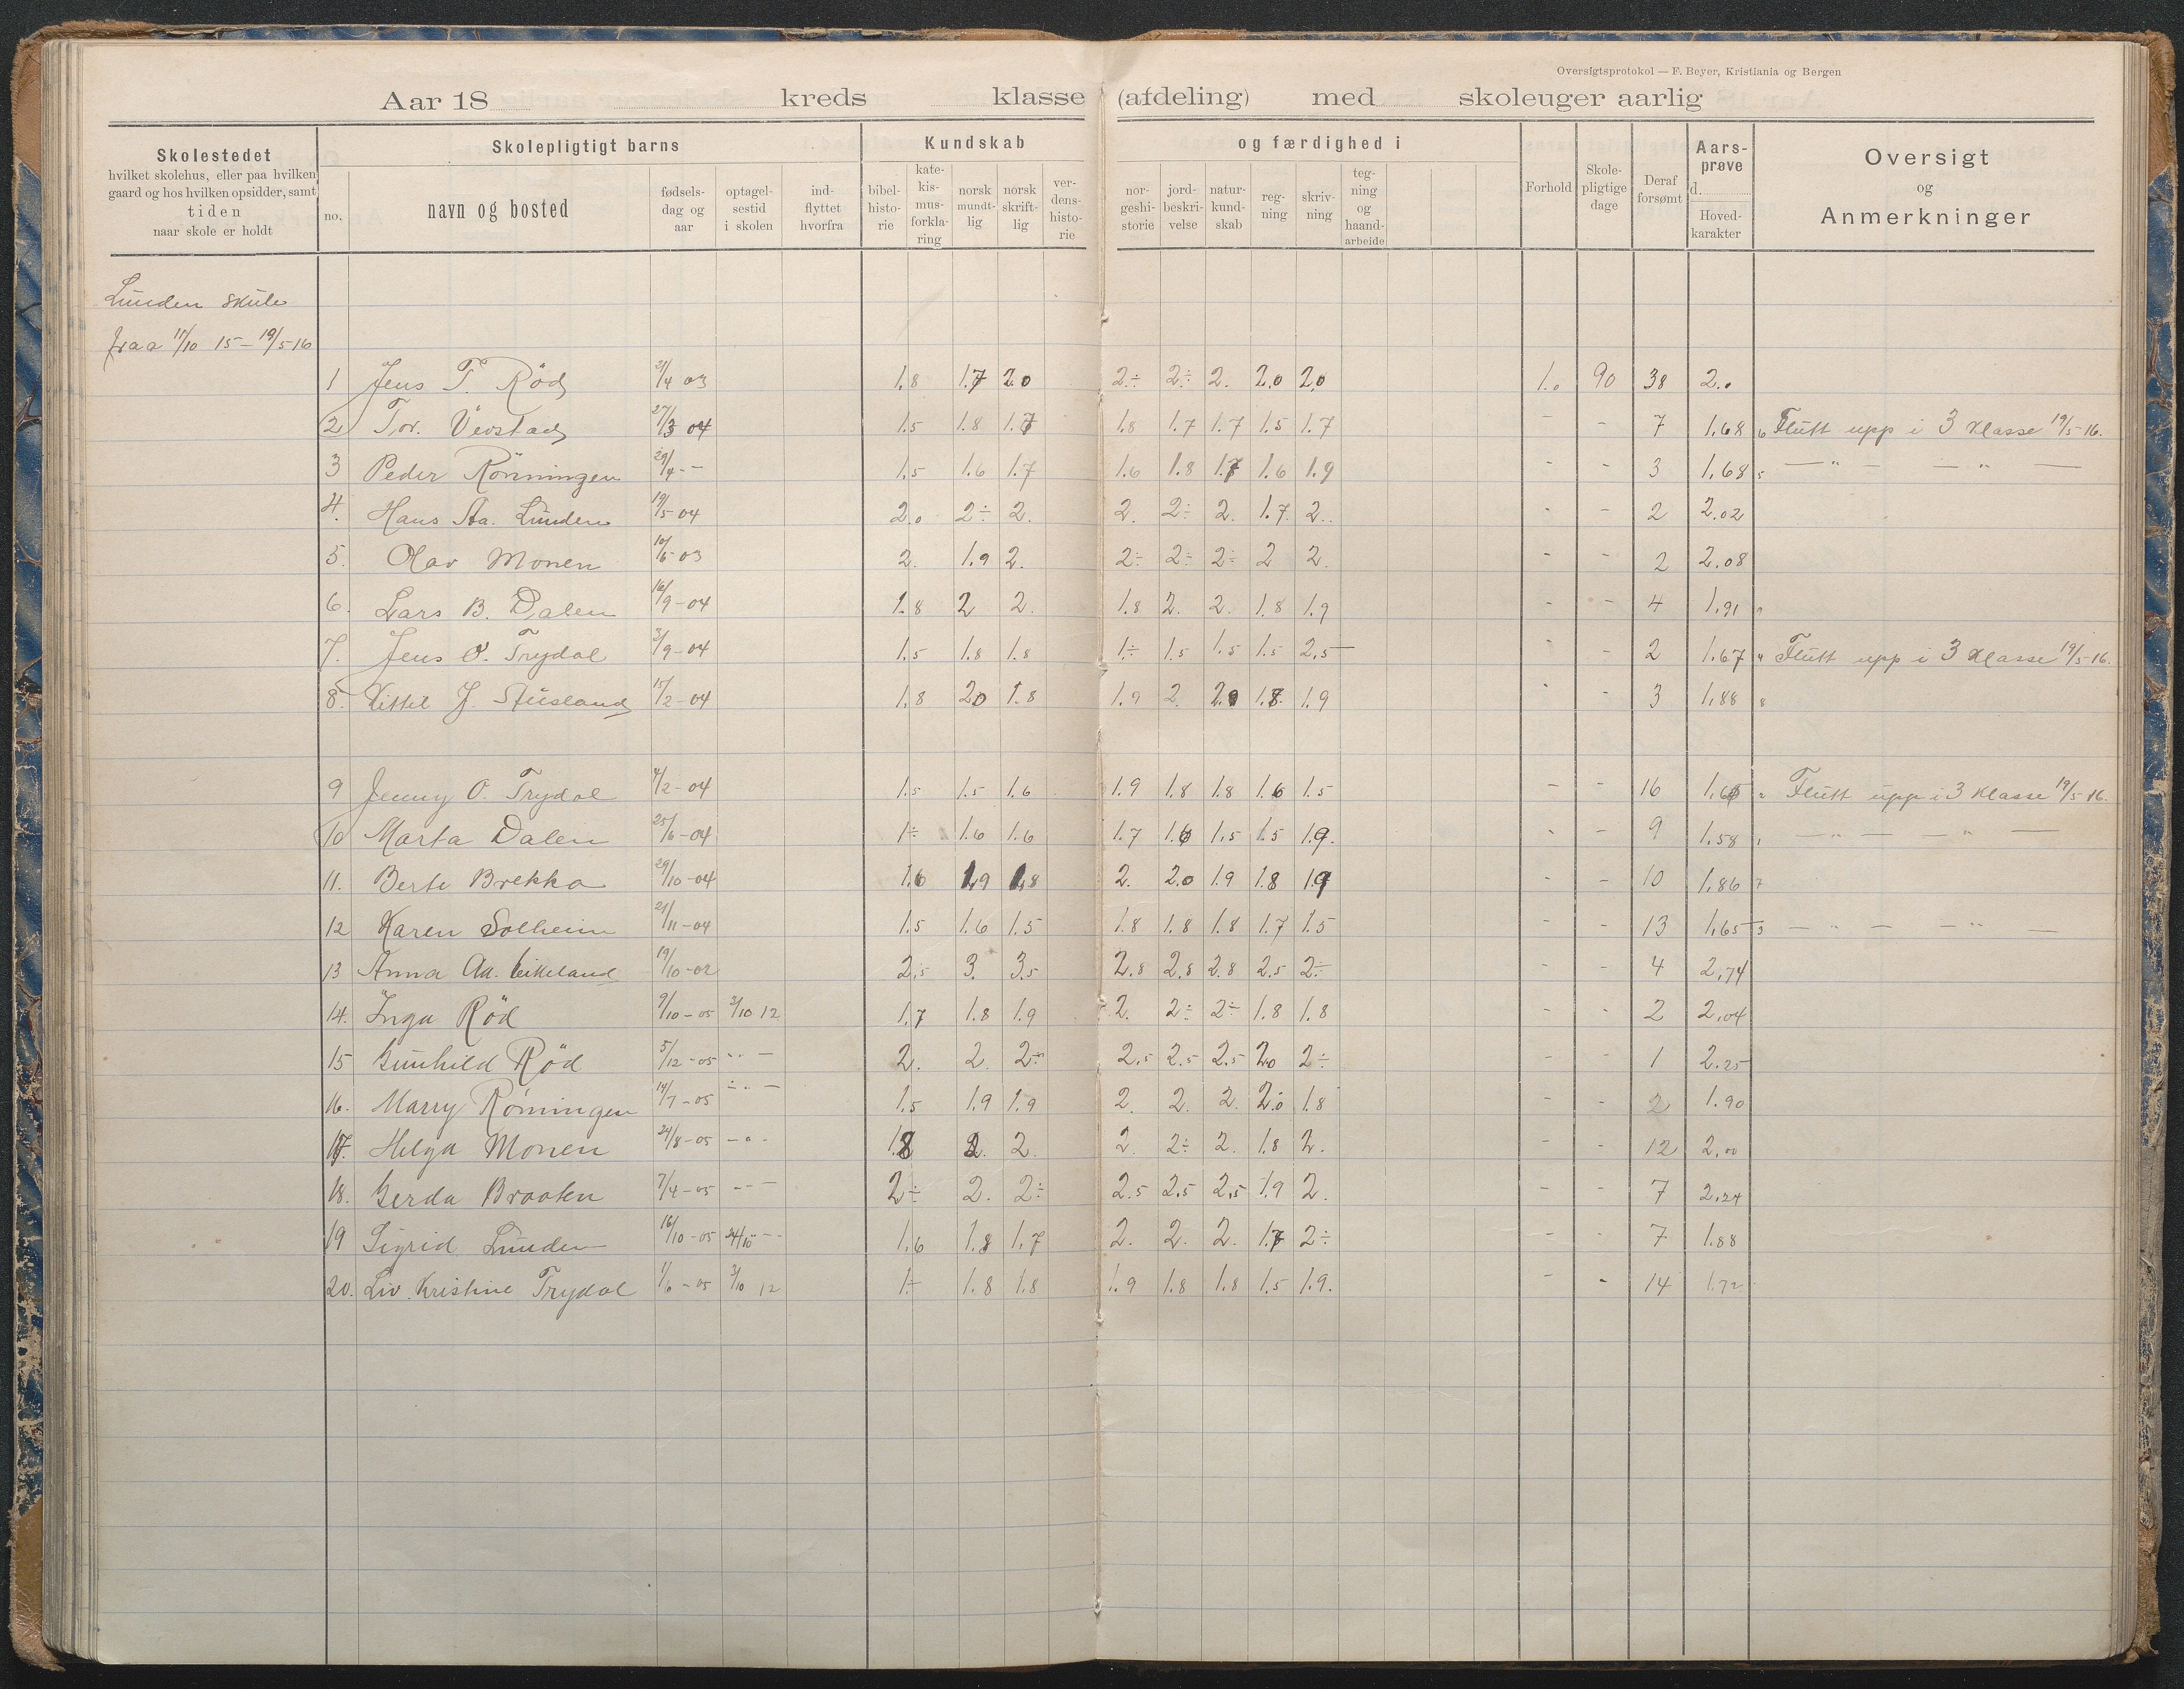 Oversigtsprotokol — F. Beyer, Kristiania og Bergen
Aar 18 kreds klasse (afdeling) med skoleuger aarlig
Skolestedet
hvilket skolehus, eller paa hvilken
gaard og hos hvilken opsidder, samt
tiden
naar skole er holdt
Skolepligtigt barns
no.
navn og bosted
fødsels-
dag og
aar
optagel-
sestid
i skolen
ind-
flyttet
hvorfra
Kundskab
bibel-
histo-
rie
kate-
kis-
mus-
forkla-
ring
norsk
mundt-
lig
norsk
skrift-
lig
ver-
dens-
histo-
rie
og færdighed i
nor-
geshi-
storie
jord-
beskri-
velse
natur-
kund-
skab
reg-
ning
skriv-
ning
teg-
ning
og
haand-
arbeide
Forhold
Skole-
pligtige
dage
Deraf
forsømt
Aars-
prøve
d.
Hoved-
karakter
Oversigt
og
Anmerkninger
Lunden skule
fraa 11/10 15 – 19/5 16
1 Jens T. Röd 21/4 03 1.8 1.7 2.0 2÷ 2÷ 2. 2.0 2.0 1.0 90 38 2.0
2 Tor. Vevstad 27/3 04 1.5 1.8 1.7 1.8 1.7 1.7 1.5 1.7 – – 7 1.68 6 Flutt upp i 3 klasse 19/5-16.
3 Peder Rönningen 29/4 - – 1.5 1.6 1.7 1.6 1.8 1.7 1.6 1.9 - - 3 1,68 5 — " — — " —
4. Hans Aa. Lunden 19/5-04 2.0 2÷ 2. 2. 2÷ 2. 1.7. 2.. - – 2 2.02
5. Olav Monen 10/6-03 2. 1.9 2. 2÷ 2÷ 2÷ 2 2. - - 2 2.08
6. Lars B. Dalen 16/9-04 1.8 2 2. 1.8 2. 2. 1.8 1.9 - - 4 1,91 9
7. Jens O. Trydal 3/9-04 1.5 1.8 1.8 1÷ 1.5 1.5 1.5 2.5 - - 2 1.67 4 Flutt upp i 3 klasse 19/5-16.
8. Kittel J. Stusland 15/2-04 1.8 20 1.8 1.9 2. 2.0 1.8. 1.9 - - 3 1,88 8
9 Jenny O. Trydal 4/2-04 1.5 1.5 1.6 1.9 1.8 1.8 1.6 1.5 – - 16 1.6 2 Flutt upp i 3 klasse 19/5-16.
10 Marta Dalen 25/6-04 1÷ 1.6 1.6 1.7 1.6 1,5 1.5 1.9. - - 9 1.58 1 — " — — " —
11. Berte Brekka 29/10-04 1.6 1.9 1.8 2. 2.0 1.9 1.8 1.9 - - 10 1,86 7
12 Karen Solheim 21/11-04 1.5 1.6 1.5 1.8 1.8 1.8 1.7 1.5 - - 13 1,65 3 — " — — " —
13 Anna Aa. Eikeland 19/10-02 2.5 3. 3.5 2.8 2.8 2.8 2.5 2÷ - - 4 2,74
14. Inga Röd 9/10-05 3/10 12 1.7 1.8 1.9 2. 2÷ 2÷ 1.8 1.8 - - 2 2,04
15 Gunhild Röd 5/12-05 " – 2. 2. 2÷ 2.5 2.5 2.5 2.0 2÷ - - 1 2.25
16. Marry Rönningen 14/7-05 – " – 1.5 1.9 1.9 2. 2. 2. 2.0 1.8 - - 2 1.90
17. Helga Monen 24/8-05 – " - 1.8 2. 2. 2. 2÷ 2. 1.8 2. - - 12 2,00
18. Gerda Braaten 7/4-05 - - – 2÷ 2. 2÷ 2.5 2.5 2,5 1.9 2. - - 7 2,24
19 Sigrid Lunden 16/10-05 24/10 - - 1,6 1.8 1,7 2. 2. 2. 1.7 2÷ - - 7 1.88
20. Liv. Kristine Trydal 1/6-05 3/10 12 1÷ 1.8 1.8 1.9 1.8 1.8 1.5 1.9. - - 14 1.72